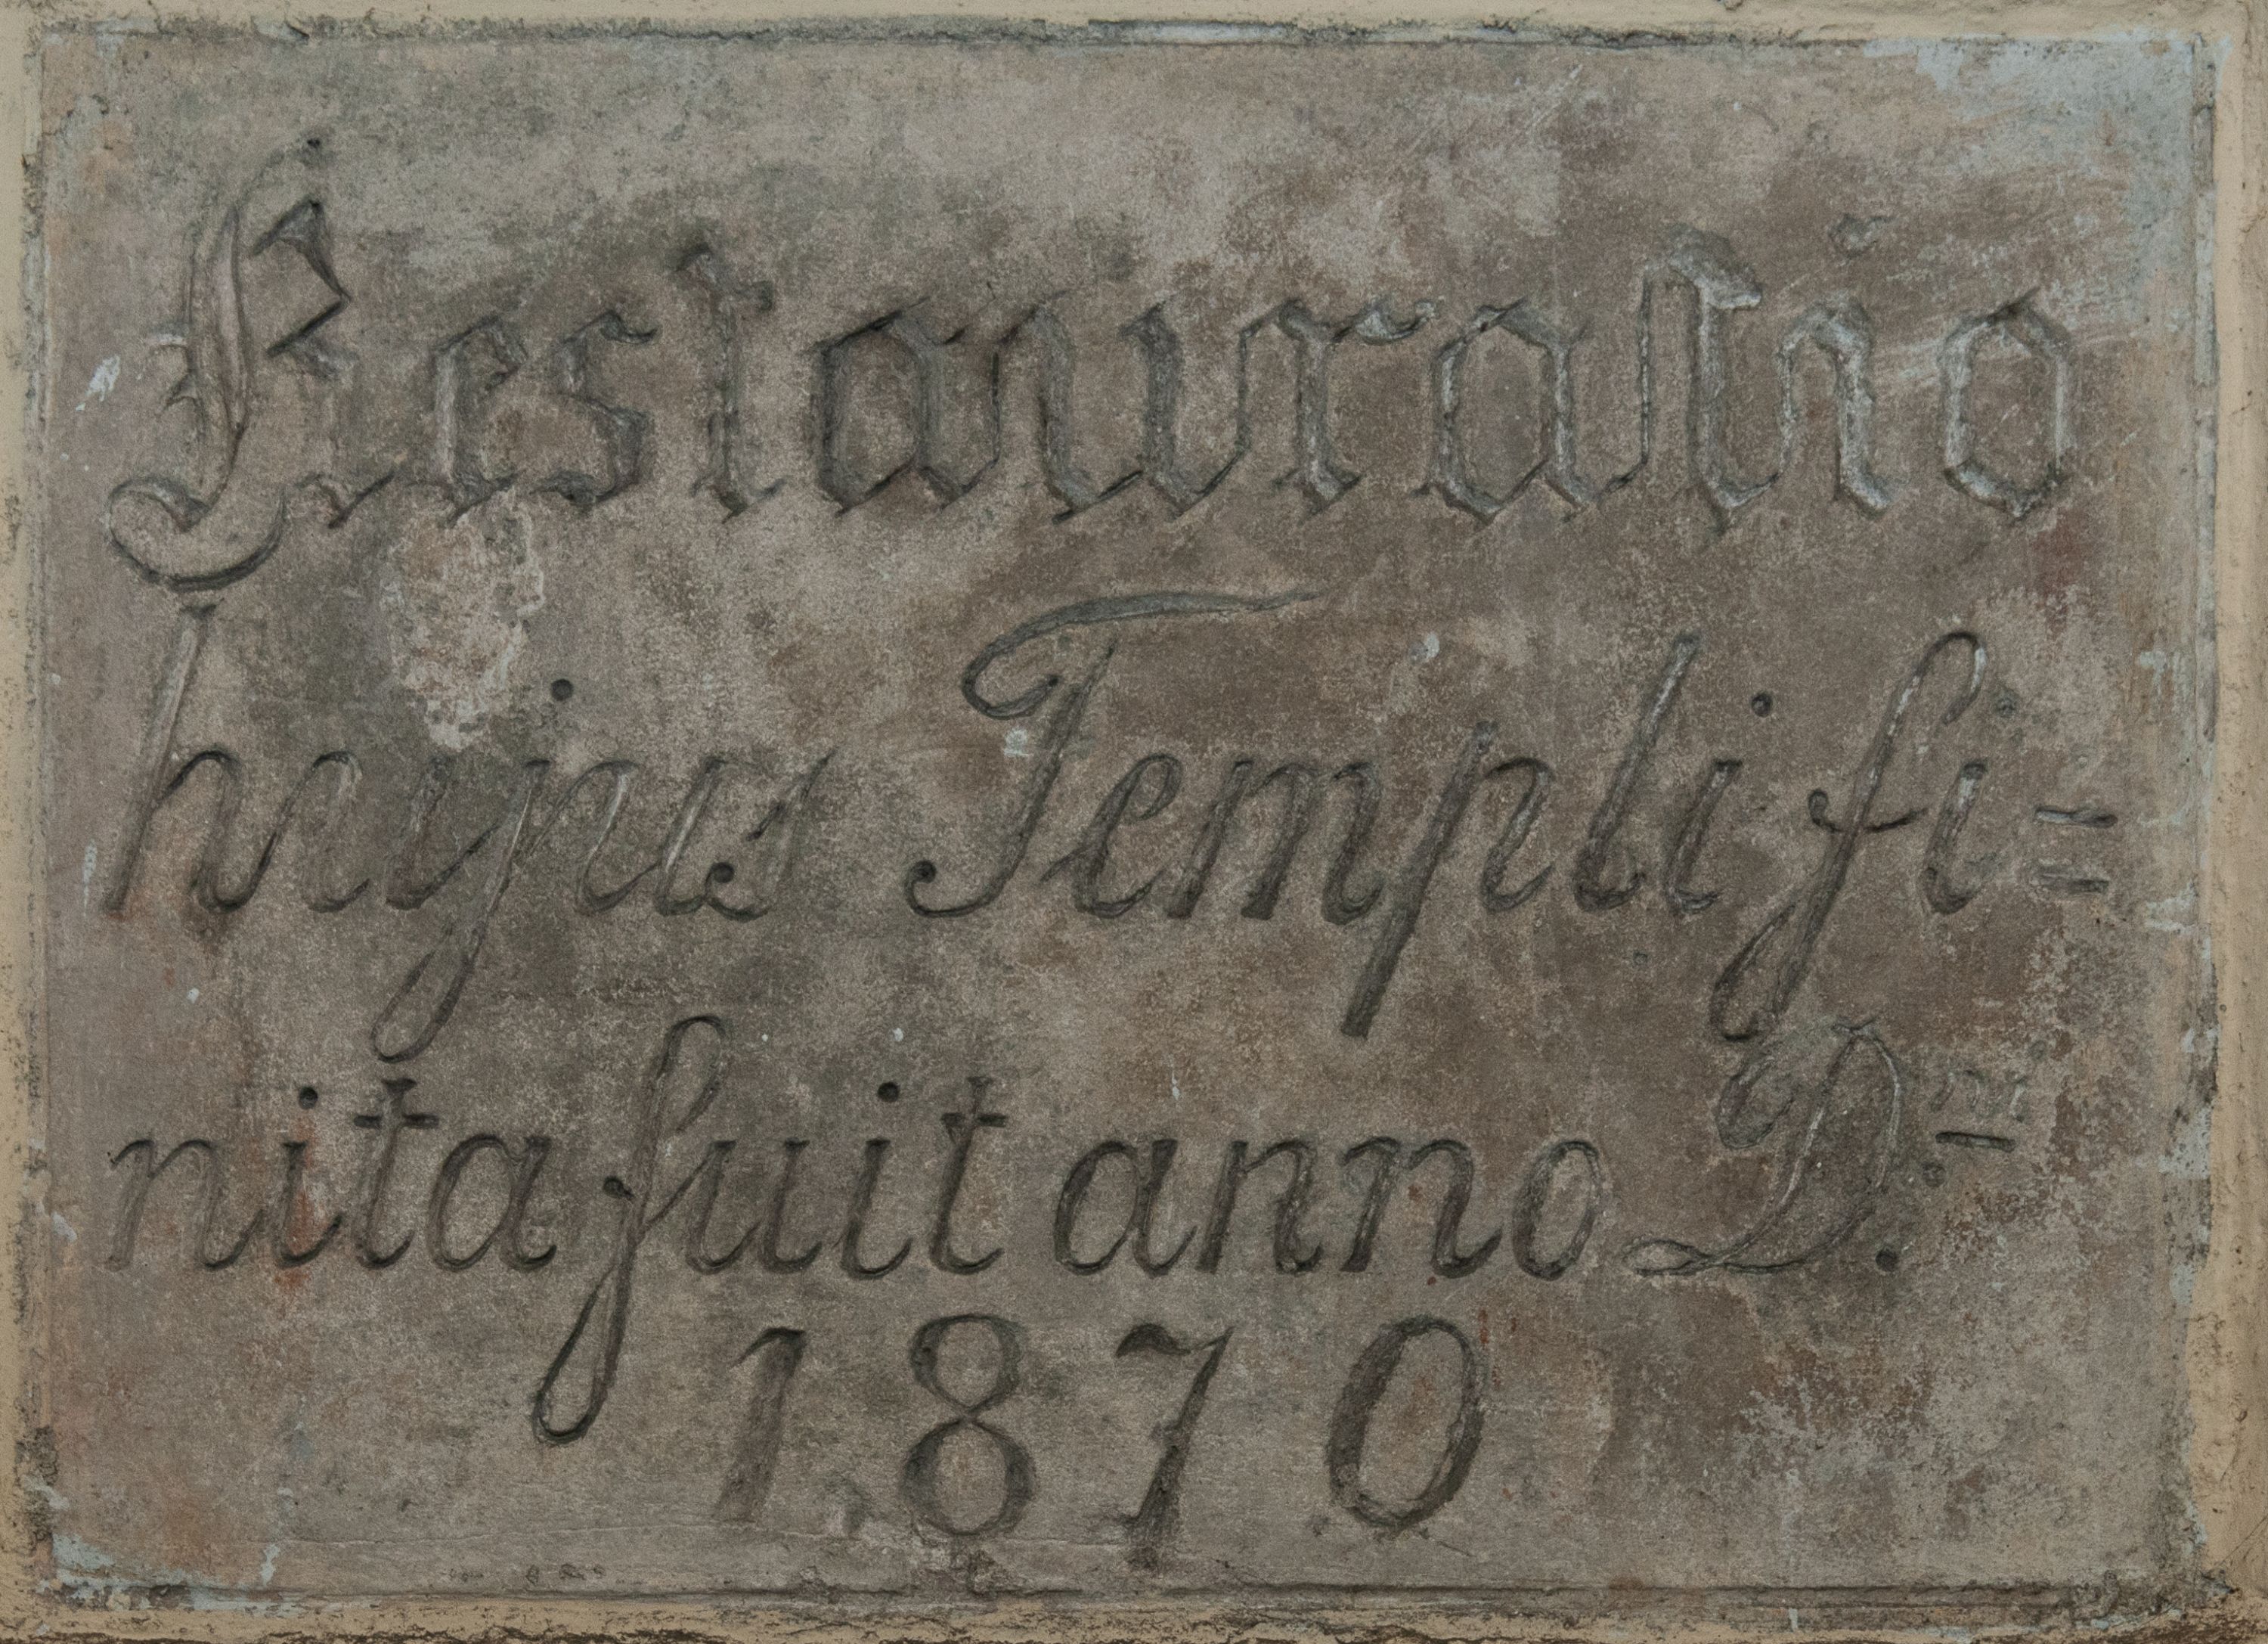 Restauratio
hujus Templi fi=
nita fuit anno D. ni
1870